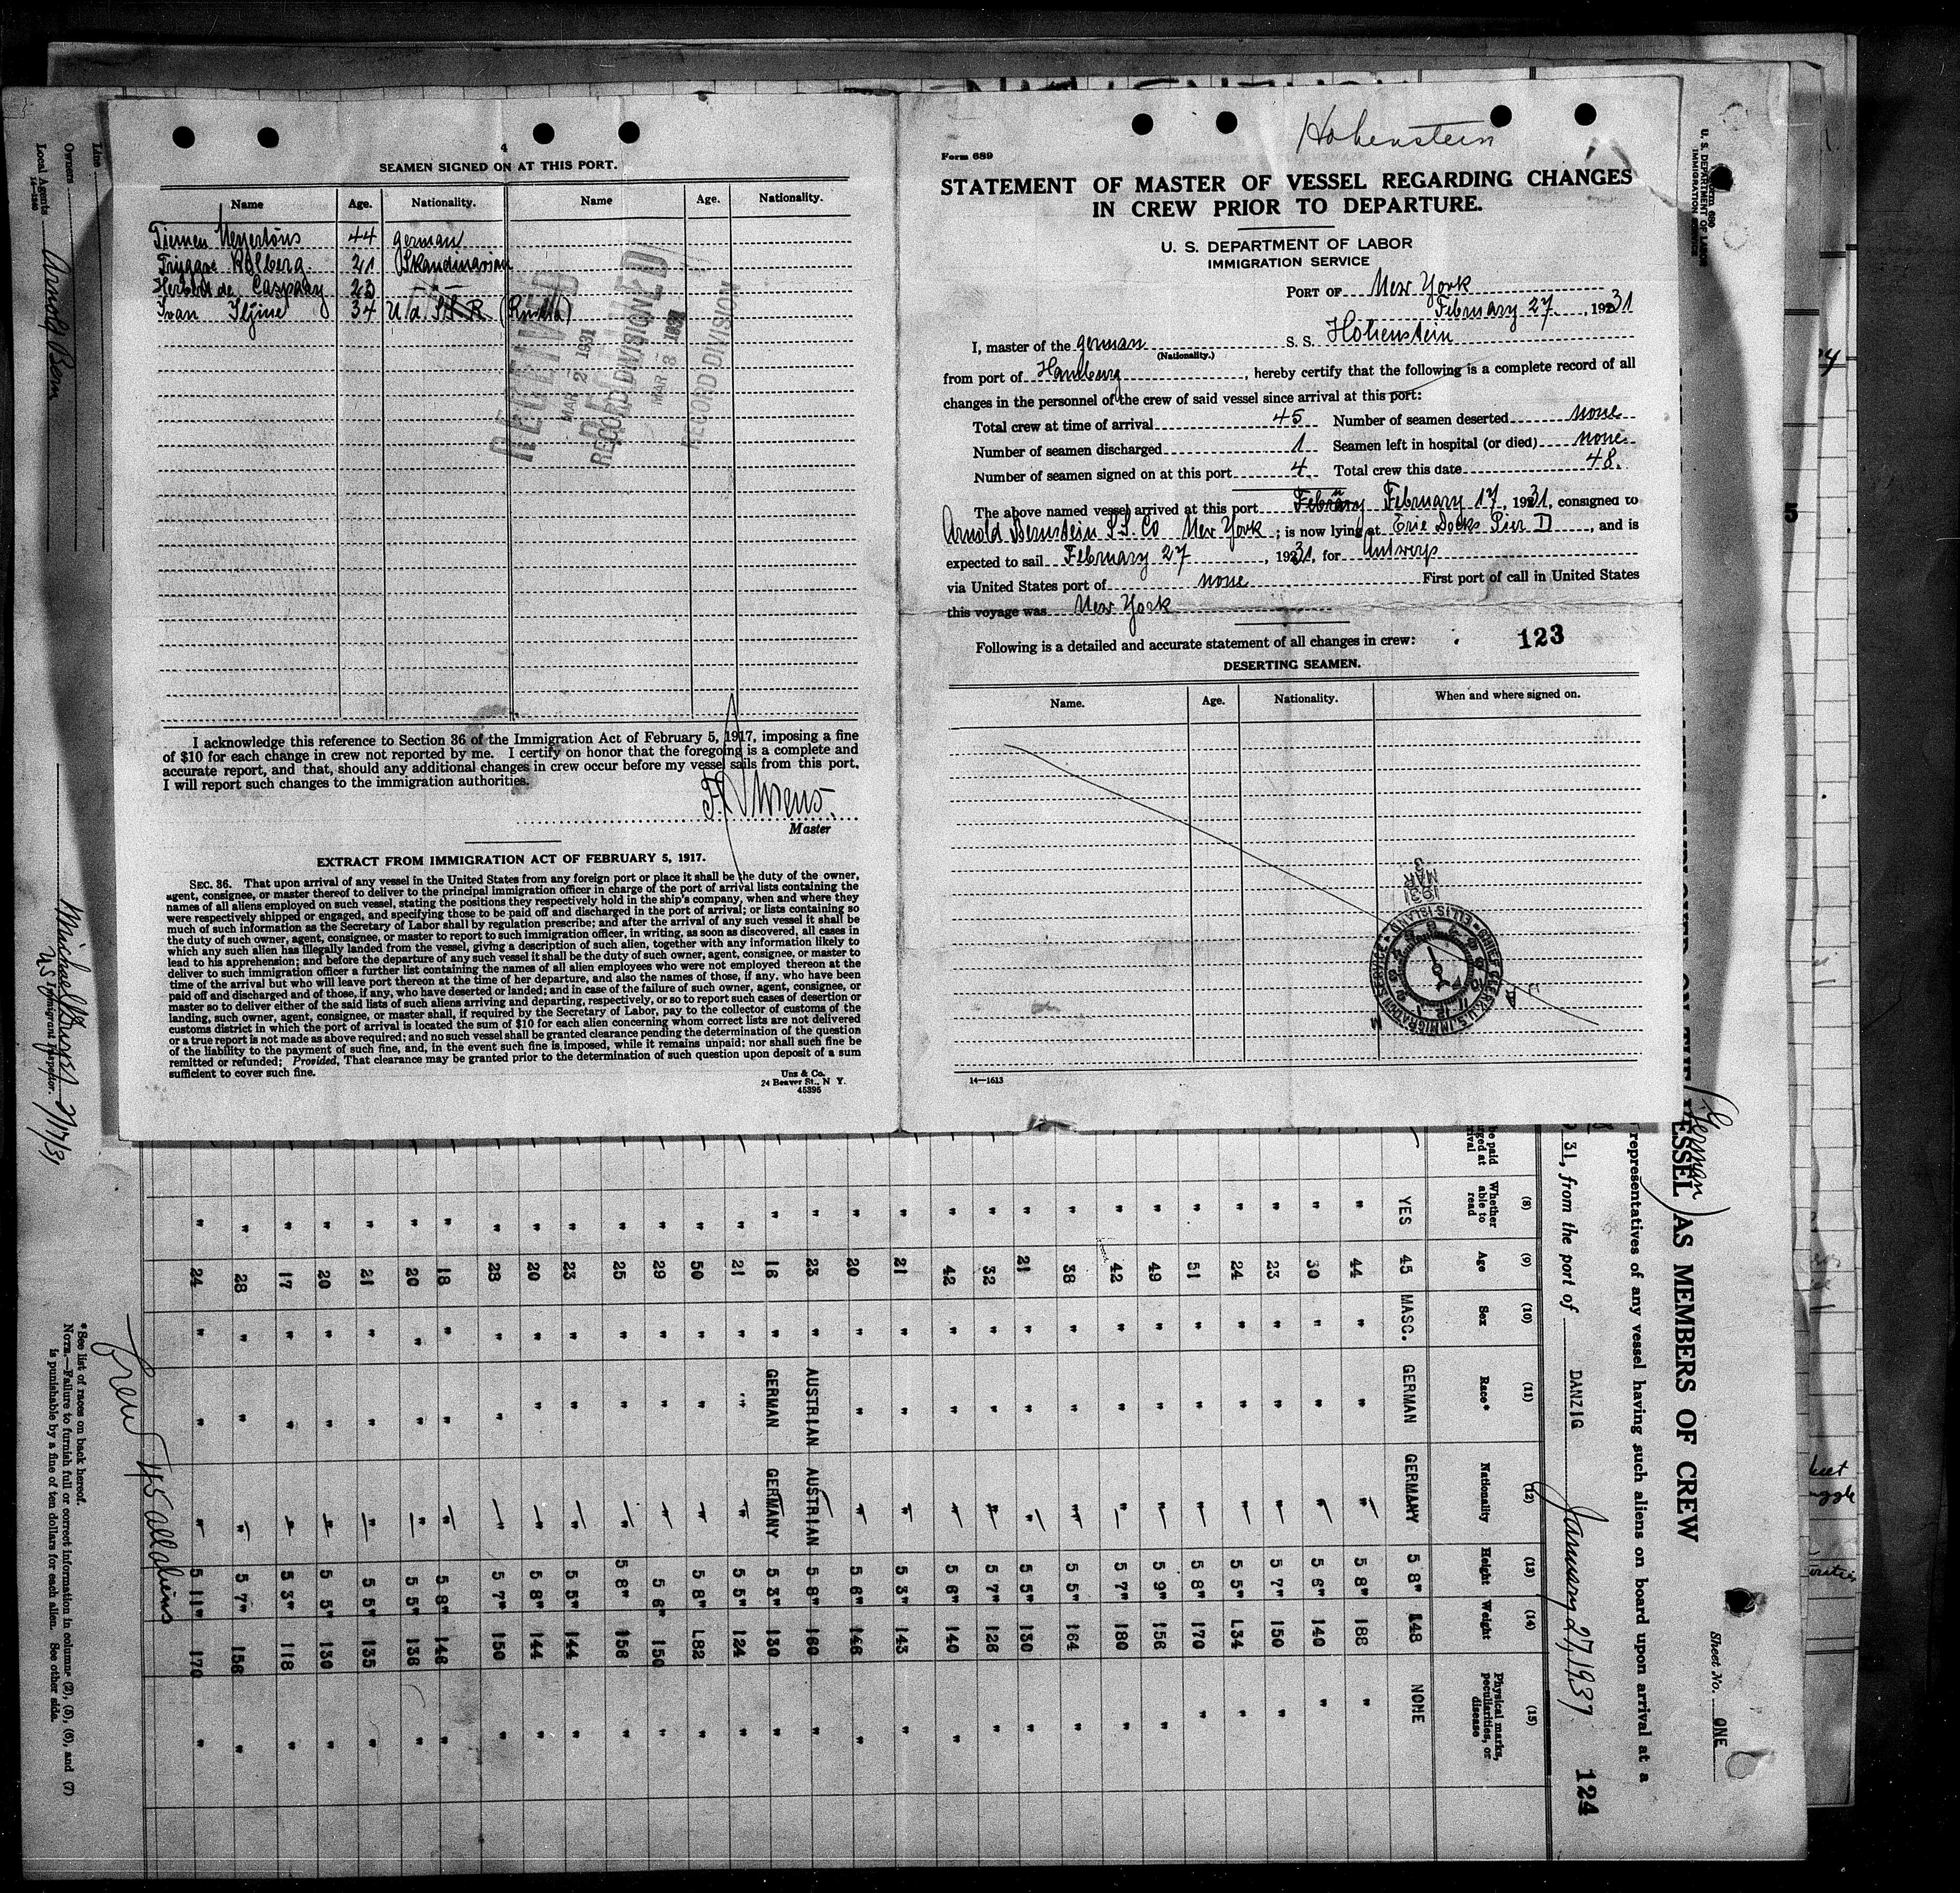 4
SEAMEN SIGNED ON AT THIS PORT.
Name Age. Nationality. Name Age. Nationality.
44 german
Tryggve 21 Skandinavian
Caspary 23 - " -
Ivan Iljine 34
RECEIVED
MAR 2 1931
RECORD DIVISION
MAR 2 1931
RECORD DIVISION
I acknowledge this reference to Section 36 of the Immigration Act of February 5, 1917, imposing a fine
of $10 for each change in crew not reported by me. I certify on honor that the foregoing is a complete and
accurate report, and that, should any additional changes in crew occur before my vessel sails from this port,
I will report such changes to the immigration authorities.
Master
EXTRACT FROM IMMIGRATION ACT OF FEBRUARY 5, 1917.
SEC. 36. That upon arrival of any vessel in the United States from any foreign port or place it shall be the duty of the owner,
agent, consignee, or master thereof to deliver to the principal immigration officer in charge of the port of arrival lists containing the
names of all aliens employed on such vessel, stating the positions they respectively hold in the ship's company, when and where they
were respectively shipped or engaged, and specifying those to be paid off and discharged in the port of arrival; or lists containing so
much of such information as the Secretary of Labor shall by regulation prescribe; and after the arrival of any such vessel it shall be
the duty of such owner, agent, consignee, or master to report to such immigration officer, in writing, as soon as discovered, all cases in
which any such alien has illegally landed from the vessel, giving a description of such alien, together with any information likely to
lead to his apprehension; and before the departure of any such vessel it shall be the duty of such owner, agent, consignee, or master to
deliver to such immigration officer a further list containing the names of all alien employees who were not employed thereon at the
time of the arrival but who will leave port thereon at the time of her departure, and also the names of those, if any, who have been
paid off and discharged and of those, if any, who have deserted or landed; and in case of the failure of such owner, agent, consignee, or
master so to deliver either of the said lists of such aliens arriving and departing, respectively, or so to report such cases of desertion or
landing, such owner, agent, consignee, or master shall, if required by the Secretary of Labor, pay to the collector of customs of the
customs district in which the port of arrival is located the sum of $10 for each alien concerning whom correct lists are not delivered
or a true report is not made as above required; and no such vessel shall be granted clearance pending the determination of the question
of the liability to the payment of such fine, and, in the event such fine is imposed, while it remains unpaid; nor shall such fine be
remitted or refunded; Provided, That clearance may be granted prior to the determination of such question upon deposit of a sum
sufficient to cover such fine.
Unz & Co.
24 Beaver St., N Y.
45395
Hohenstein
Form 689
STATEMENT OF MASTER OF VESSEL REGARDING CHANGES
IN CREW PRIOR TO DEPARTURE.
U. S. DEPARTMENT OF LABOR
IMMIGRATION SERVICE
PORT OF New York
February 27, 1931
I, master of the german S. S. Hohenstein
(Nationality.)
from port of Hamburg, hereby certify that the following is a complete record of all
changes in the personnel of the crew of said vessel since arrival at this port:
Total crew at time of arrival 45 Number of seamen deserted none
Number of seamen discharged 1 Seamen left in hospital (or died) none
Number of seamen signed on at this port 4 Total crew this date 48.
The above named vessel arrived at this port February 17, 1931, consigned to
Arnold Bernstein S.S. Co New York; is now lying at Erie Docks Pier D, and is
expected to sail February 27, 1931, for Antwerp
via United States port of none First port of call in United States
this voyage was New York
Following is a detailed and accurate statement of all changes in crew: 123
DESERTING SEAMEN.
Name. Age. Nationality. When and where signed on.
MAR 3
1931
CHIEF CLERK, U.S. IMMIGRATION SERVICE ELLIS ISLAND
14—1613
U. S. DEPARTMENT OF LABOR
IMMIGRATION SERVICE
Form 680
Sheet No. ONE
VESSEL AS MEMBERS OF CREW
(German)
representatives of any vessel having such aliens on board upon arrival at a
31, from the port of DANZIG January 27, 1931
124
(8) (9) (10) (11) (12) (13) (14) (15)
Whether able to read Age Sex Race* Nationality Height Weight Physical marks, peculiarities, or disease
YES 45 MASC. GERMAN GERMANY 5 8" 148 NONE
" 44 " " " 5 8" 188 "
" 30 " " " 5 6" 140 "
" 23 " " " 5 7" 150 "
" 24 " " " 5 5" L34 "
" 51 " " " 5 8" 170 "
" 49 " " " 5 9" 156 "
" 42 " " " 5 7" 180 "
" 38 " " " 5 5" 164 "
" 21 " " " 5 5" 130 "
" 32 " " " 5 7" 126 "
" 42 " " " 5 6" 140 "
" 21 " " " 5 3" 143 "
" 20 " " " 5 6" 146 "
" 23 " AUSTRIAN AUSTRIAN 5 8" 160 "
" 16 " GERMAN GERMANY 5 3" 130 "
" 21 " " " 5 5" 124 "
" 50 " " " 5 8" L82 "
" 29 " " " 5 6" 150 "
" 25 " " " 5 8" 156 "
" 23 " " " 5 5" 144 "
" 20 " " " 5 8" 144 "
" 28 " " " 5 7" 150 "
" 18 " " " 5 8" 146 "
" 20 " " " 5 5" 136 "
" 21 " " " 5 5" 135 "
" 20 " " " 5 5" 130 "
" 17 " " " 5 3" 118 "
" 28 " " " 5 7" 156 "
" 24 " " " 5 11" 170 "
Crew 45 all aliens
*See list of races on back hereof.
NOTE.—Failure to furnish full or correct information in columns (2), (5), (6), and (7)
is punishable by a fine of ten dollars for each alien. See other side.
Line
Owners
Local Agents Arnold Bern
14—1240
Michael 2/17/31
US Immigrant Inspector.